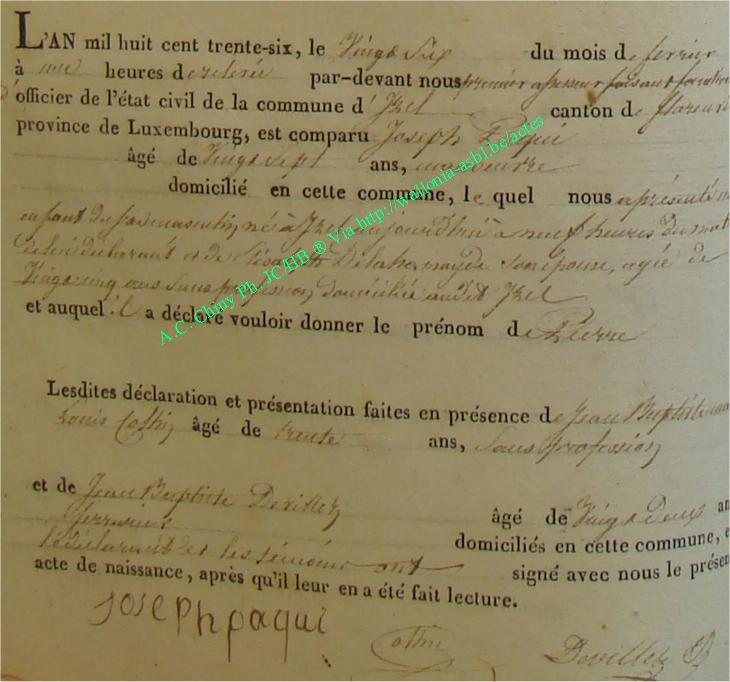 L'AN mil huit cent trente-six, le Vingt Six du mois de fevrier
à une heures de relevée par-devant nous premier assesseur faisant fonction
officier de l'état civil de la commune d'Izel canton de florenvi
province de Luxembourg, est comparu Joseph Paqui
âgé de Vingt Sept ans, manœuvre
domicilié en cette commune, le quel nous a présenté un
enfant du sexe masculin, né à Izel aujourd'hui à neuf heures du mat
de lui déclarant et de Elisabeth Delahemayde son épouse, agée de
Vingt cinq ans sans profession domiciliée audit Izel
et auquel il a déclaré vouloir donner le prénom de Pierre
A.C. Chiny Ph. JC/HB ® Via http://wallonia-asbl.be/actes
Lesdites déclaration et présentation faites en présence de Jean Baptiste
Louis Collin âgé de trente ans, Sans profession
et de Jean Baptiste Devillez âgé de Vingt Deux an
serrurier domiciliés en cette commune, e
le déclarant et les témoins ont signé avec nous le présen
acte de naissance, après qu'il leur en a été fait lecture.
Joseph paqui
Collin Devillez